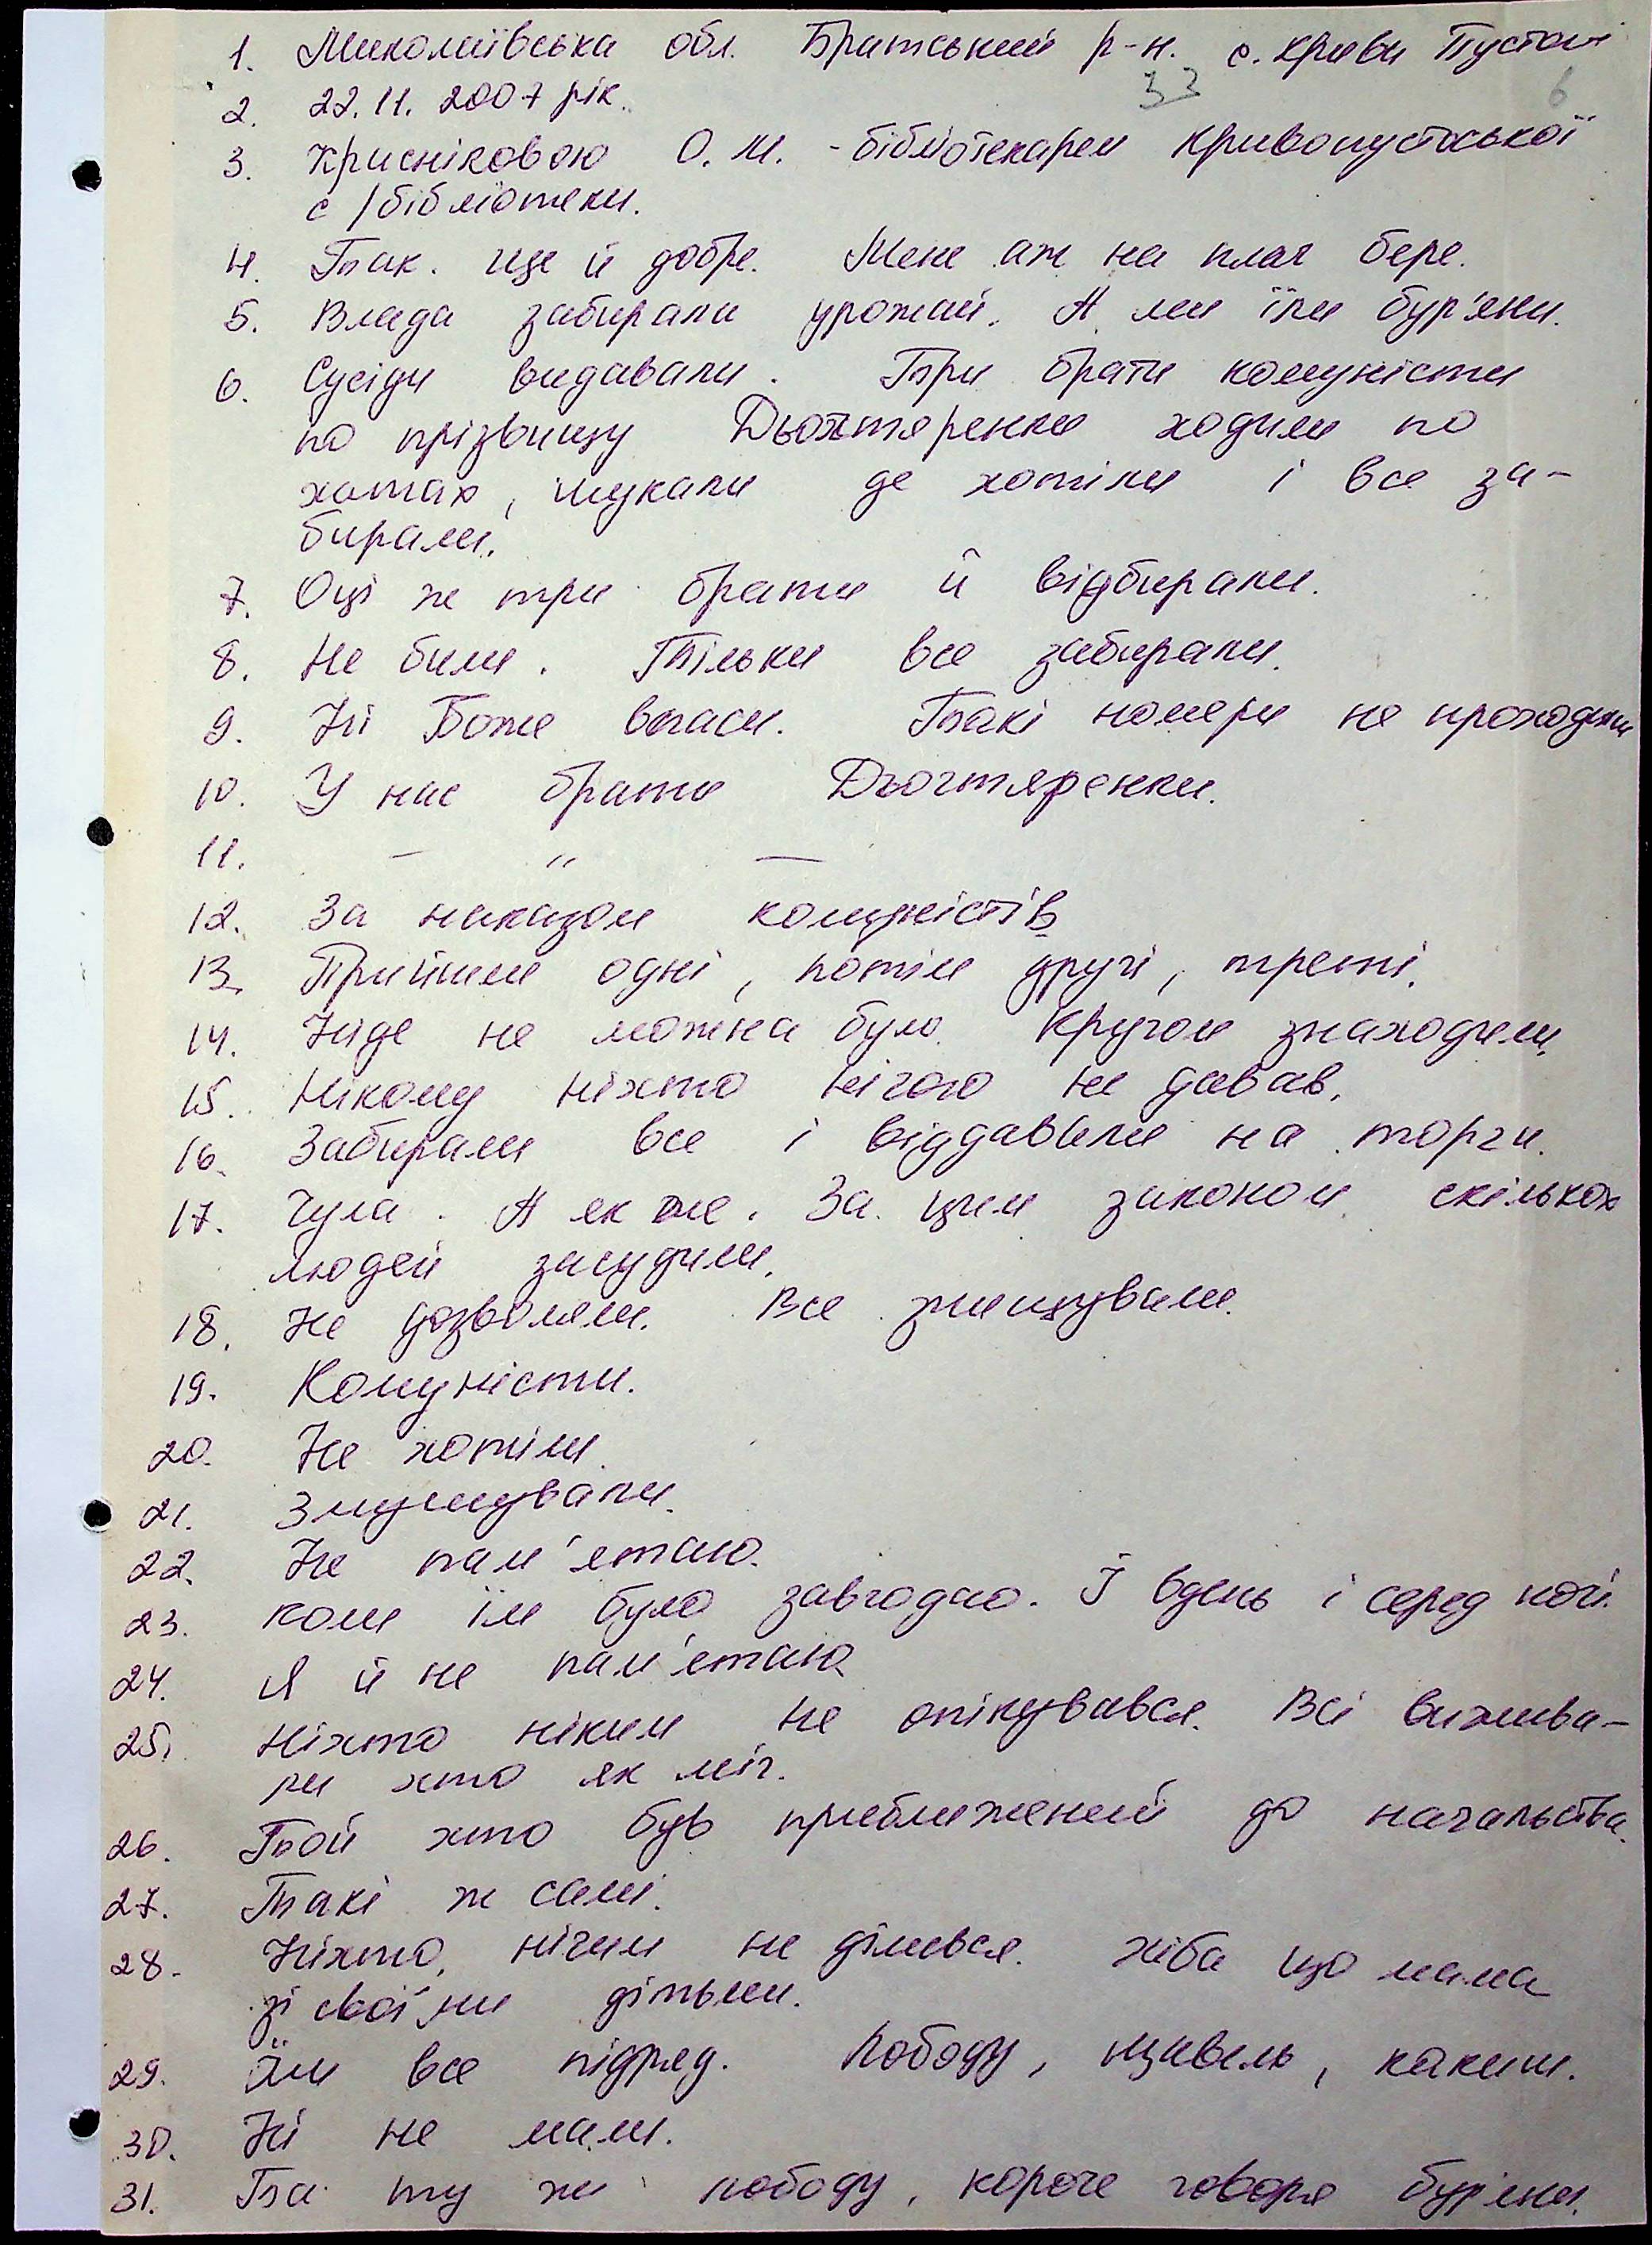 1. Миколаївська обл. Братський р-н. с. Криви Пустоші
33 6
2. 22.11.2007 рік.
3. Крисніковою О.М. - бібліотекарем Кривопустоської
с/бібліотеки.
4. Так. ще й добре. Мене аж на плач бере.
5. Влада забирала урожай. А ми їли бур'яни.
6. Сусіди видавали. Три брати комуністи
по прізвищу Дьохтяренки ходили по
хатах, шукали де хотіли і все за-
бирали.
7. Оці ж три брати й відбирали.
8. Не били. Тільки все забирали.
9. Ні Боже впаси. Такі номери не проходили
10. У нас брати Дьогтяренки.
11. — " —
12. За наказом комуністів
13. Прийшли одні, потім другі, треті.
14. Ніде не можна було. Кругом знаходили.
15. Нікому ніхто нічого не давав.
16. Забирали все і віддавали на торги.
17. Чула. А як же. За цим законом скількох
людей засудили.
18. Не дозволяли. Все знищували.
19. Комуністи.
20. Не хотіли.
21. Змушували.
22. Не пам'ятаю.
23. Коли їм було завгодно. І вдень і серед ночі.
24. Я й не пам'ятаю
25. Ніхто ніким не опікувався. Всі вижива-
ли хто як міг.
26. Той хто був приближений до начальства.
27. Такі ж самі.
28. Ніхто, нічим не ділився. Хіба що мама
зі своїми дітьми.
29. Їли все підряд. Лободу, щавель, какиш.
30. Ні не мали.
31. Та ту ж лободу, короче говоря бур'яни.